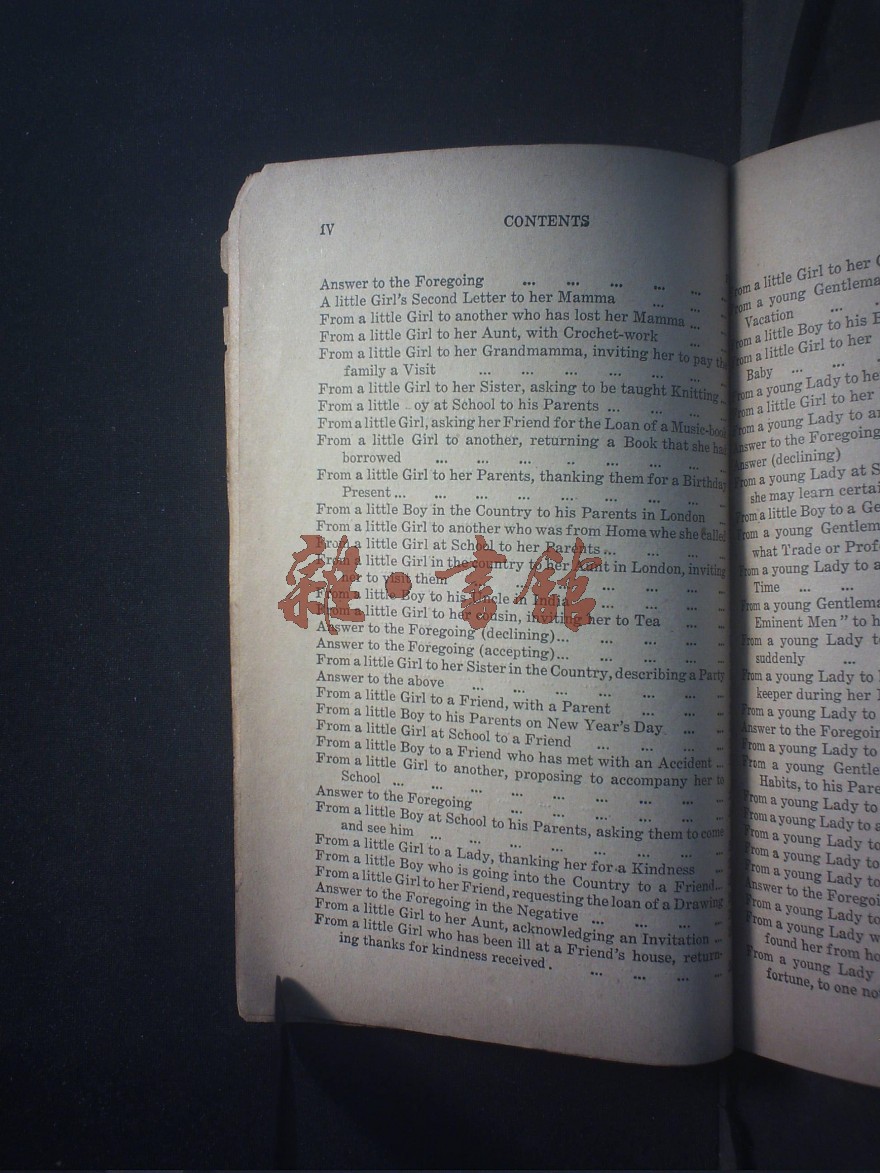 IV
CONTENTS
Answer to the Foregoing ... ... ... ... ...
A little Girl's Second Letter to her Mamma ... ...
From a little Girl to another who has lost her Mamma ...
From a little Girl to her Aunt, with Crochet-work ...
From a little Girl to her Grandmamma, inviting her to pay the
family a Visit ... ... ... ... ... ...
From a little Girl to her Sister, asking to be taught Knitting ...
From a little oy at School to his Parents ... ... ...
From a little Girl, asking her Friend for the Loan of a Music-book
From a little Girl to another, returning a Book that she had
borrowed ... ... ... ... ... ... ...
From a little Girl to her Parents, thanking them for a Birthday
Present ... ... ... ... ... ... ... ...
From a little Boy in the Country to his Parents in London ...
From a little Girl to another who was from Home whe she called
From a little Girl at School to her Parents ... ... ...
From a little Girl in the country to her Aunt in London, inviting
her to visit them ... ... ... ... ...
From a little Boy to his Uncle in India ... ... ...
From a little Girl to her cousin, inviting her to Tea ... ...
雜·書館
Answer to the Foregoing (declining) ... ... ... ...
Answer to the Foregoing (accepting) ... ... ... ...
From a little Girl to her Sister in the Country, describing a Party
Answer to the above ... ... ... ... ... ...
From a little Girl to a Friend, with a Parent ... ... ...
From a little Boy to his Parents on New Year's Day ... ...
From a little Girl at School to a Friend ... ... ...
From a little Boy to a Friend who has met with an Accident ...
From a little Girl to another, proposing to accompany her to
School ... ... ... ... ... ... ... ...
Answer to the Foregoing ... ... ... ... ...
From a little Boy at School to his Parents, asking them to come
and see him ... ... ... ... ... ... ...
From a little Girl to a Lady, thanking her for a Kindness ...
From a little Boy who is going into the Country to a Friend ...
From a little Girl to her Friend, requesting the loan of a Drawing
Answer to the Foregoing in the Negative ... ... ... ...
From a little Girl to her Aunt, acknowledging an Invitation ...
From a little Girl who has been ill at a Friend's house, return-
ing thanks for kindness received. ... ... ... ...
From a little Girl to her
From a young
Vacation ... ...
From a little Boy to his
From a little Girl to her
Baby ... ...
From a young Lady to
From a little Girl to her
From a young Lady to
Answer to the Foregoing
Answer (declining)
From a young Lady at
she may learn
From a little Boy to a
From a young
what Trade or
From a young Lady to
Time ... ...
From a young
Eminent Men" to
From a young Lady
suddenly ...
From a young Lady to
keeper during her
From a young Lady to
Answer to the
From a young Lady to
From a young
Habits, to his
From a young Lady to
From a young Lady to
From a young Lady to
From a young Lady to
From a young Lady to
Answer to the
From a young Lady to
From a young Lady
found her from
From a young Lady
fortune, to one